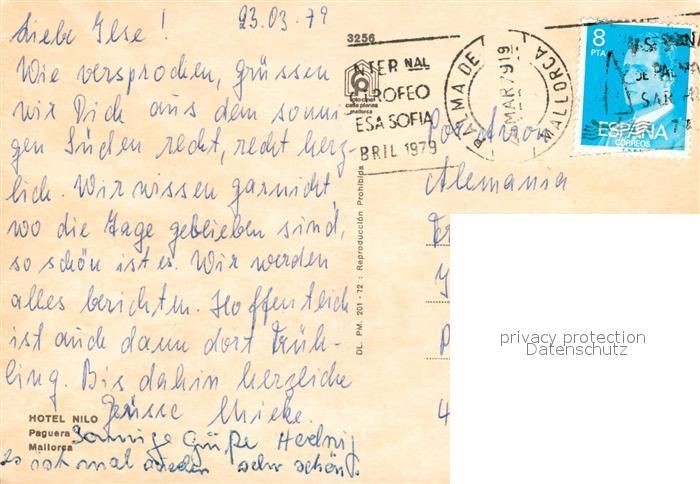 Liebe Ilse! 23.03.79
Wie versprochen, grüssen
wir Dich aus dem sonni-
gen Süden recht, recht herz-
lich. Wir wissen garnicht,
wo die Tage geblieben sind,
so schön ist es. Wir werden
alles berichten. Hoffentlich
ist auch dann dort Früh-
ling. Bis dahin herzliche
Grüsse Mieke.
Sonnige Grüße Hedwig
es ist mal wieder sehr schön.
HOTEL NILO
Paguera
Mallorca
3256
foto-cine
casa planas
mallorca
DL. PM. 201 - 72 : Reproducción Prohibida
NTER NAL
TROFEO
ESA SOFIA
BRIL 1979
PALMA DE MALLORCA
MAR 79 19
8
PTA
ESPAÑA
CORREOS
Por avion
Alemania
privacy protection
Datenschutz
4